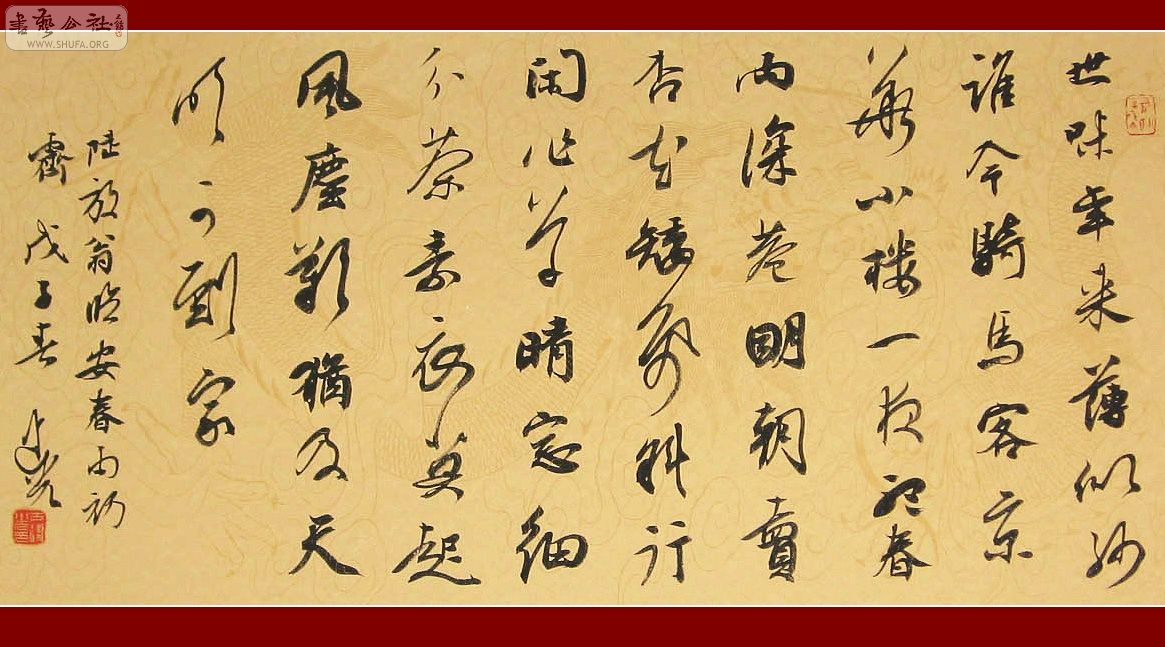 書藝公社
WWW.SHUFA.ORG
世味年来薄似紗
誰今騎馬客京
華小樓一夜聽春
雨深巷明朝賣
杏花矮紙斜行
闲作草晴窓細
分茶素衣莫起
風塵歎猶及天
明可到家
陸放翁臨安春雨初
霽戊子春